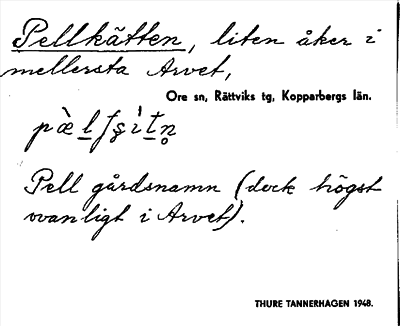 Pellkätten, liten åker i
mellersta Arvet,
Ore sn, Rättviks tg, Kopparbergs län.
Pell gårdsnamn (dock högst
ovanligt i Arvet).
THURE TANNERHAGEN 1948.